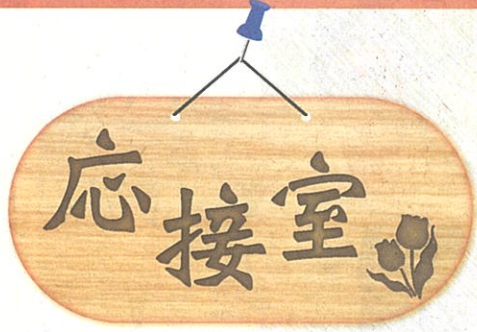 応接室